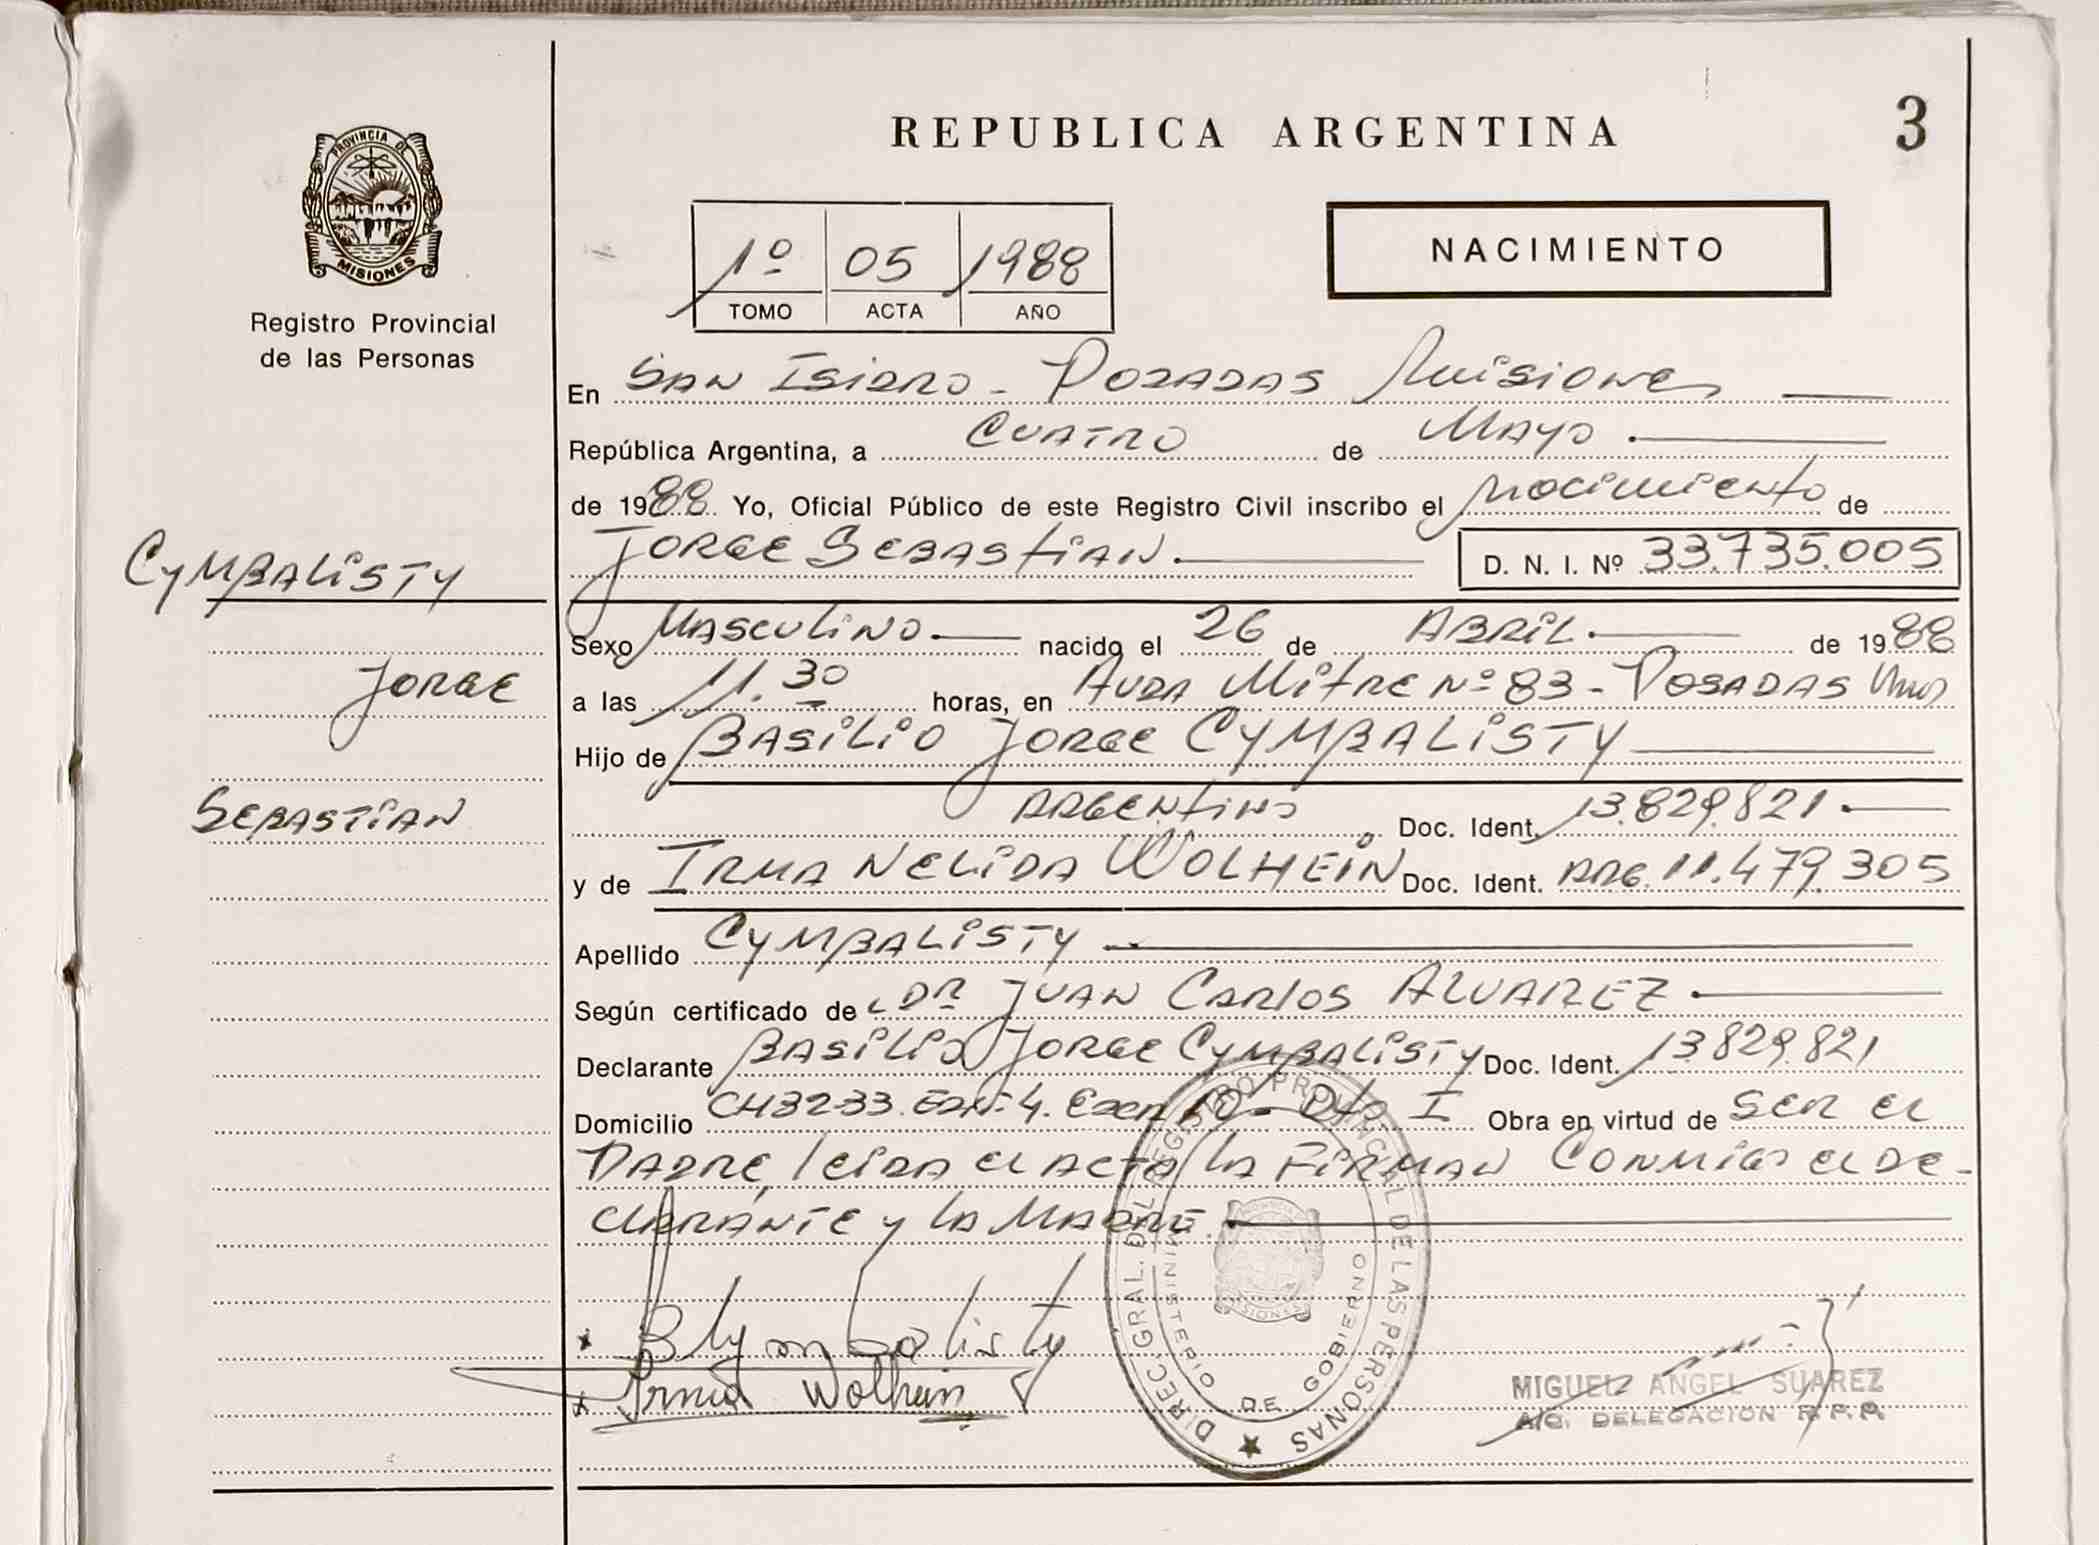 REPUBLICA ARGENTINA
3
PROVINCIA DE
MISIONES
Registro Provincial
de las Personas
1º 05 1988
TOMO ACTA AÑO
NACIMIENTO
En San Isidro - Posadas Misiones
República Argentina, a Cuatro de Mayo.
de 1988. Yo, Oficial Público de este Registro Civil inscribo el nacimiento de
Jorge Sebastian.
D. N. I. Nº 33.735.005
Cymbalisty
Jorge
Sebastian
Sexo Masculino. nacido el 26 de Abril. de 1988
a las 11.30 horas, en Avda Mitre Nº 83 - Posadas Mnes
Hijo de Basilio Jorge Cymbalisty
Argentino Doc. Ident. 13.829.821.
y de Irma Nelida Wolhein Doc. Ident. Arg. 11.479.305
Apellido Cymbalisty
Según certificado de Dr Juan Carlos Alvarez.
Declarante Basilio Jorge Cymbalisty Doc. Ident. 13.829.821
Domicilio CH 32-33. Edif. 4. 10 - Dto I Obra en virtud de ser el
Padre, leida el acta la firman conmigo el de-
clarante y la Madre.
x BCymbalisty
x Irma Wolhein
DIREC. GRAL. DEL REGISTRO PROVINCIAL DE LAS PERSONAS
MINISTERIO DE GOBIERNO
MISIONES
MIGUEL ANGEL SUAREZ
A/C. DELEGACION R.P.P.